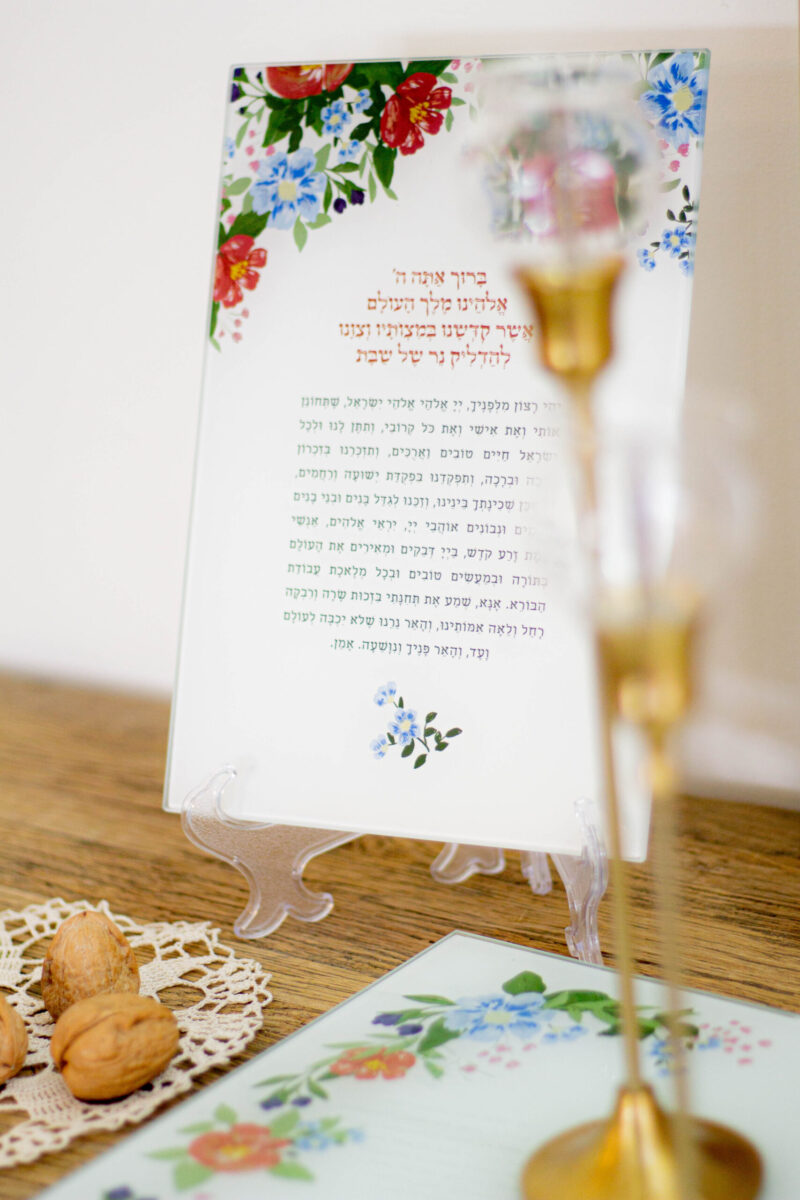 בָּרוּךְ אַתָּה ה'
אֱלֹהֵינוּ מֶלֶךְ הָעוֹלָם
אֲשֶׁר קִדְּשָׁנוּ בְּמִצְוֹתָיו וְצִוָּנוּ
לְהַדְלִיק נֵר שֶׁל שַׁבָּת
יהִי רָצוֹן מִלְּפָנֶיךָ, יְיָ אֱלֹהַי אֱלֹהֵי יִשְׂרָאֵל, שֶׁתְּחוֹנֵן
אוֹתִי וְאֶת אִישִׁי וְאֶת כֹּל קְרוֹבַי, וְתִתֵּן לָנוּ וּלְכָל
יִשְׂרָאֵל חַיִּים טוֹבִים וַאֲרֻכִּים, וְתִזְכְּרֵנוּ בְּזִכְרוֹן
וּבְרָכָה, וְתִפְקְדֵנוּ בִּפְקֻדַּת יְשׁוּעָה וְרַחֲמִים,
שְׁכִינָתְךָ בֵּינֵינוּ, וְזַכֵּנוּ לְגַדֵּל בָּנִים וּבְנֵי בָנִים
וּנְבוֹנִים אוֹהֲבֵי יְיָ, יִרְאֵי אֱלֹהִים, אַנְשֵׁי
אֱמֶת זֶרַע קֹדֶשׁ, בַּייָ דְּבֵקִים וּמְאִירִים אֶת הָעוֹלָם
בְּתּוֹרָה וּבְמַעֲשִׂים טוֹבִים וּבְכָל מְלֶאכֶת עֲבוֹדַת
הַבּוֹרֵא. אָנָּא, שְׁמַע אֶת תְּחִנָּתִי בִּזְכוּת שָׂרָה וְרִבְקָה
רָחֵל וְלֵאָה אִמּוֹתֵינוּ, וְהָאֵר נֵרֵנוּ שֶׁלֹּא יִכְבֶּה לְעוֹלָם
וָעֶד, וְהָאֵר פָּנֶיךָ וְנִוָּשֵׁעָה. אָמֵן.